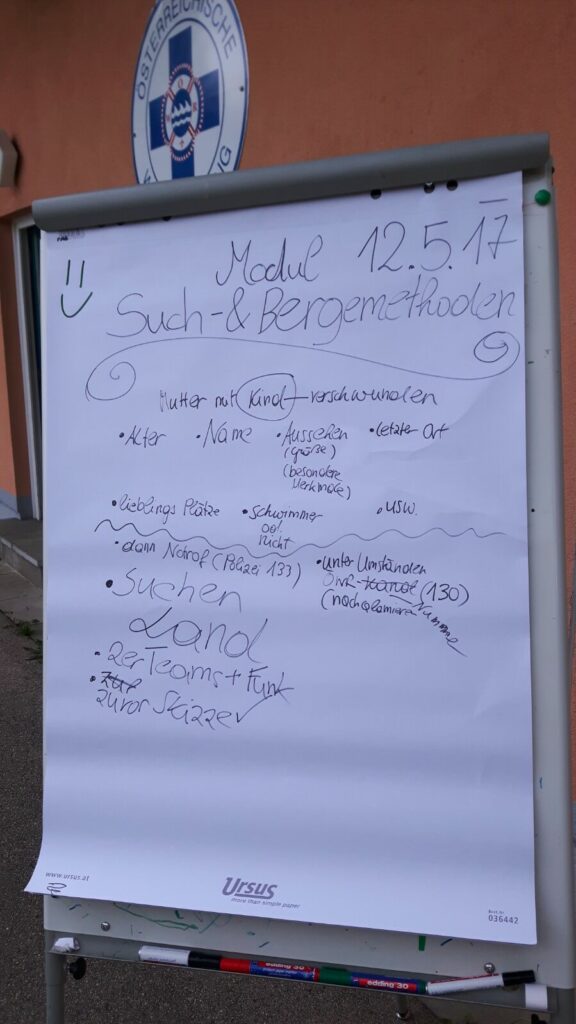 ÖSTERREICHISCHE
Modul 12.5.17
Such-& Bergemethoden
Mutter mit Kind verschwunden
• Alter • Name • Aussehen • letzter Ort
(größe)
(besondere
Merkmale)
• lieblings Plätze • schwimmer • usw.
od.
nicht
• dann Notruf (Polizei 133) • unter Umständen
ÖWR-Kanal (130)
(nachalarmieren Nummer
• Suchen
Land
• 2er Teams + Funk
• zur
zuvor Skizze
www.ursus.at
Ursus
more than simple paper
Best.Nr.
036442
edding 30
edding 30